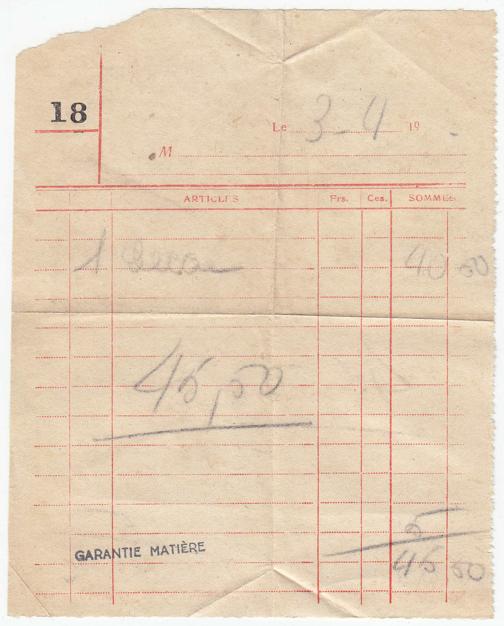 18
Le 3-4 19
M
ARTICLES Frs. Ces. SOMMES
1 40 50
45,50
5
GARANTIE MATIÈRE
45 50